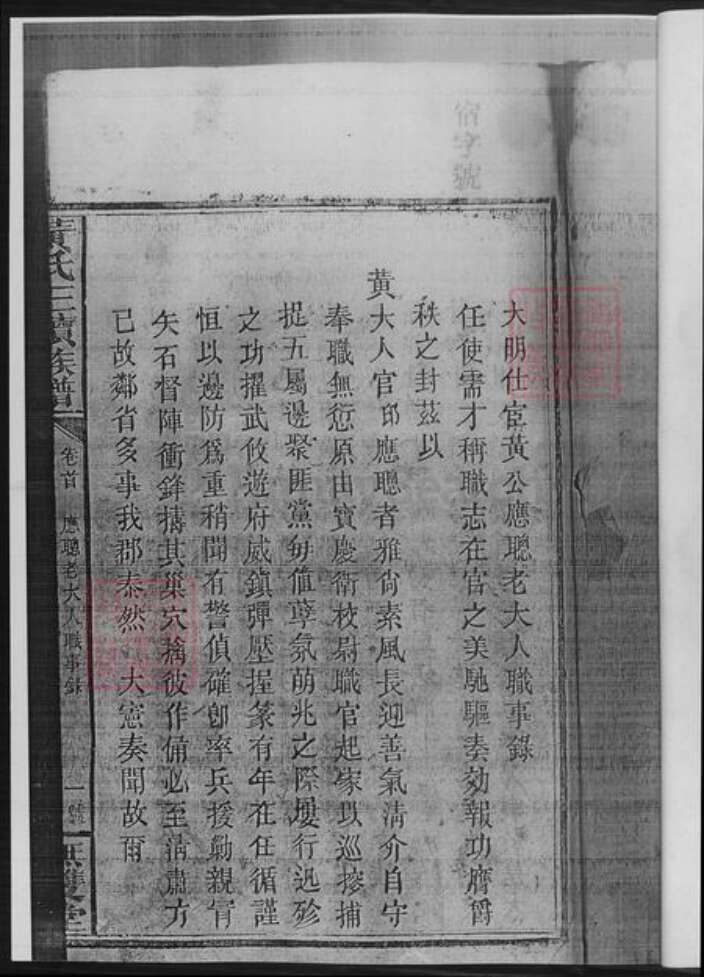 宿字號
大明仕宦黃公應聰老大人職事錄
任使需才稱職志在官之美馳驅奏効報功膺爵
秩之封茲以
黃大人官邱應聰者雅尙素風長迎善氣淸介自守
奉職無愆原由寶慶衛校尉職官起家以巡挖捕
捉五屬邊聚匪黨每值孽氛萌兆之際屢行迅殄
之功擢武攸遊府威鎮彈壓握篆有年在任循謹
恒以邊防爲重稍聞有警偵確卽率兵援勦親冒
矢石督陣衝鋒擣其巢穴擒彼作俑必至淸肅方
已故鄰省多事我郡泰然 大憲奏聞故爾
黃氏三續族譜
卷首 應聰老大人職事錄
一
無雙堂